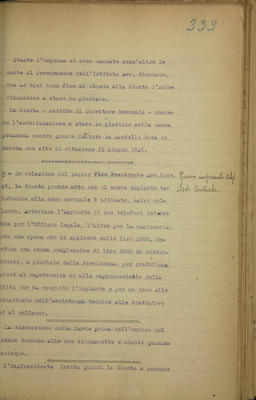 333
Stante l'urgenza si sono mandate senz'altro le
carte al Procuratore dell'Istituto Avv. Giordano.
Ora ad ogni buon fine si chiede alla Giunta l'auto-
rizzazione a stare in giudizio.
La Giunta - sentito il Direttore Generale - conce-
de l'autorizzazione a stare in giudizio nella causa
promossa contro questo Istituto da Santelli Rosa in
con atto di citazione 22 giugno 1926.
Su relazione del Signor Vice Presidente Avv.
la Giunta prende atto che il nuovo impianto te-
lefonico alla sede centrale è ultimato, salvo
Nuovo impianto
Sede Centrale
Autorizza l'aggiunta di due telefoni interni
uno per l'Ufficio legale, l'altro per la ragioneria,
con una spesa che si aggirerà sulle lire 2000.
una somma complessiva di lire 1000 da distri-
buirsi, a giudizio della Presidenza, per gratifica-
zioni al capotecnico ed alla rappresentante della
Ditta che ha eseguito l'impianto e per un dono allo
incaricato dell'assistenza tecnica alle trattative
ed al collaudo.
La discussione sulla parte prima dell'ordine del
giorno termina alle ore diciassette e minuti quaran-
tacinque.
Presidente invita quindi la Giunta a passare